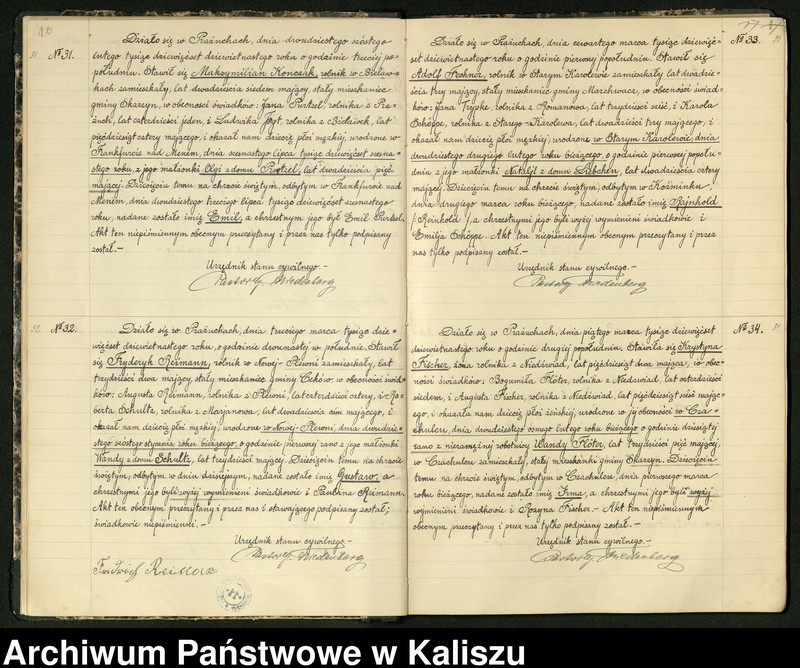 № 31.
Działo się w Prażuchach, dnia dwudziestego szóstego
lutego tysiąc dziewięćset dziewiętnastego roku o godzinie trzeciej po=
południu. Stawił się Maksymilian Konczak, rolnik w
kach zamieszkały, lat dwadzieścia siedem mający, stały mieszkaniec
gminy Skarzyn, w obecności świadków: Jana Purtzel, rolnika z Pra=
żuch, lat czterdzieści jeden, i Ludwika rolnika z
pięćdziesiąt cztery mającego, i okazał nam dziecię płci męskiej, urodzone w
Frankfurcie nad Menem, dnia szesnastego lipca tysiąc dziewięćset szesna=
stego roku, z jego małżonki Olgi z domu Purtzel, lat dwadzieścia pięć
mającej. Dziecięciu temu na chrzcie świętym, odbytym w Frankfurcie nad
Menem, dnia dwudziestego trzeciego lipca tysiąc dziewięćset szesnastego
roku, nadane zostało imię Emil, a chrzestnym jego był Emil Purtzel.
Akt ten niepiśmiennym obecnym przeczytany i przez nas tylko podpisany
został.-
Urzędnik stanu cywilnego.-
№ 32.
Działo się w Prażuchach, dnia trzeciego marca tysiąc dzie=
więćset dziewiętnastego roku, o godzinie dwunastej w południe. Stawił
się Fryderyk Reimann, rolnik w Nowej-Plewni zamieszkały, lat
trzydzieści dwa mający, stały mieszkaniec gminy Ceków w obecności świad=
ków: Augusta Reimann, rolnika z Plewni, lat czterdzieści cztery, i Ro=
berta Schultz, rolnika z Marjanowa, lat dwadzieścia ośm mającego, i
okazał nam dziecię płci męskiej, urodzone w Nowej-Plewni, dnia dwudzie=
stego szóstego stycznia roku bieżącego, o godzinie pierwszej rano z jego małżonki
Wandy z domu Schultz, lat trzydzieści mającej. Dziecięciu temu na chrzcie
świętym, odbytym w dniu dzisiejszym, nadane zostało imię Gustaw, a
chrzestnymi jego byli wyżej wymienieni świadkowie i Paulina Reimann.
Akt ten obecnym przeczytany i przez nas i stawającego podpisany został;
świadkowie niepiśmienni.-
Urzędnik stanu cywilnego.-
№ 33.
Działo się w Prażuchach, dnia czwartego marca tysiąc dziewięć=
set dziewiętnastego roku o godzinie pierwszej popołudniu. Stawił się
Adolf Fechner, rolnik w Starym Karolewie zamieszkały lat dwadzie=
ścia trzy mający, stały mieszkaniec gminy Marchwacz, w obecności świad=
ków: Jana rolnika z Romanowa, lat trzydzieści sześć, i Karola
Schöppe, rolnika z Starego-Karolewa, lat dwadzieścia trzy mającego, i
okazał nam dziecię płci męskiej, urodzone w Starym Karolewie, dnia
dwudziestego drugiego lutego roku bieżącego, o godzinie pierwszej popołu=
dniu z jego małżonki Natalji z domu lat dwadzieścia cztery
mającej. Dziecięciu temu na chrzcie świętym, odbytym w Koźminku,
dnia drugiego marca roku bieżącego, nadane zostało imię Rajnhold
/Reinhold/, a chrzestnymi jego byli wyżej wymienieni świadkowie i
Emilja Schöppe. Akt ten niepiśmiennym obecnym przeczytany i przez
nas tylko podpisany został.-
Urzędnik stanu cywilnego.-
№ 34.
Działo się w Prażuchach, dnia piątego marca tysiąc dziewięćset
dziewiętnastego roku o godzinie drugiej popołudniu. Stawiła się Krystyna
Fischer, żona rolnika z Niedźwiad, lat pięćdziesiąt dwa mająca, w obec=
ności świadków: Bogumiła Flöter, rolnika z Niedźwiad, lat czterdzieści
siedem, i Augusta Fischer, rolnika z Niedźwiad, lat pięćdziesiąt sześć mające=
go, i okazała nam dziecię płci żeńskiej, urodzone w jej obecności w Cza=
chulcu, dnia dwudziestego ósmego lutego roku bieżącego o godzinie dziesiątej
rano z niezamężnej robotnicy Wandy Flöter, lat trzydzieści pięć mającej,
w Czachulcu zamieszkałej, stałej mieszkanki gminy Skarzyn. Dziecięciu
temu na chrzcie świętym, odbytym w Czachulcu, dnia pierwszego marca
roku bieżącego, nadane zostało imię Irma, a chrzestnymi jego byli wyżej
wymienieni świadkowie i Rozyna Fischer.- Akt ten niepiśmiennym
obecnym przeczytany i przez nas tylko podpisany został.-
Urzędnik stanu cywilnego.-
Archiwum Państwowe w Kaliszu